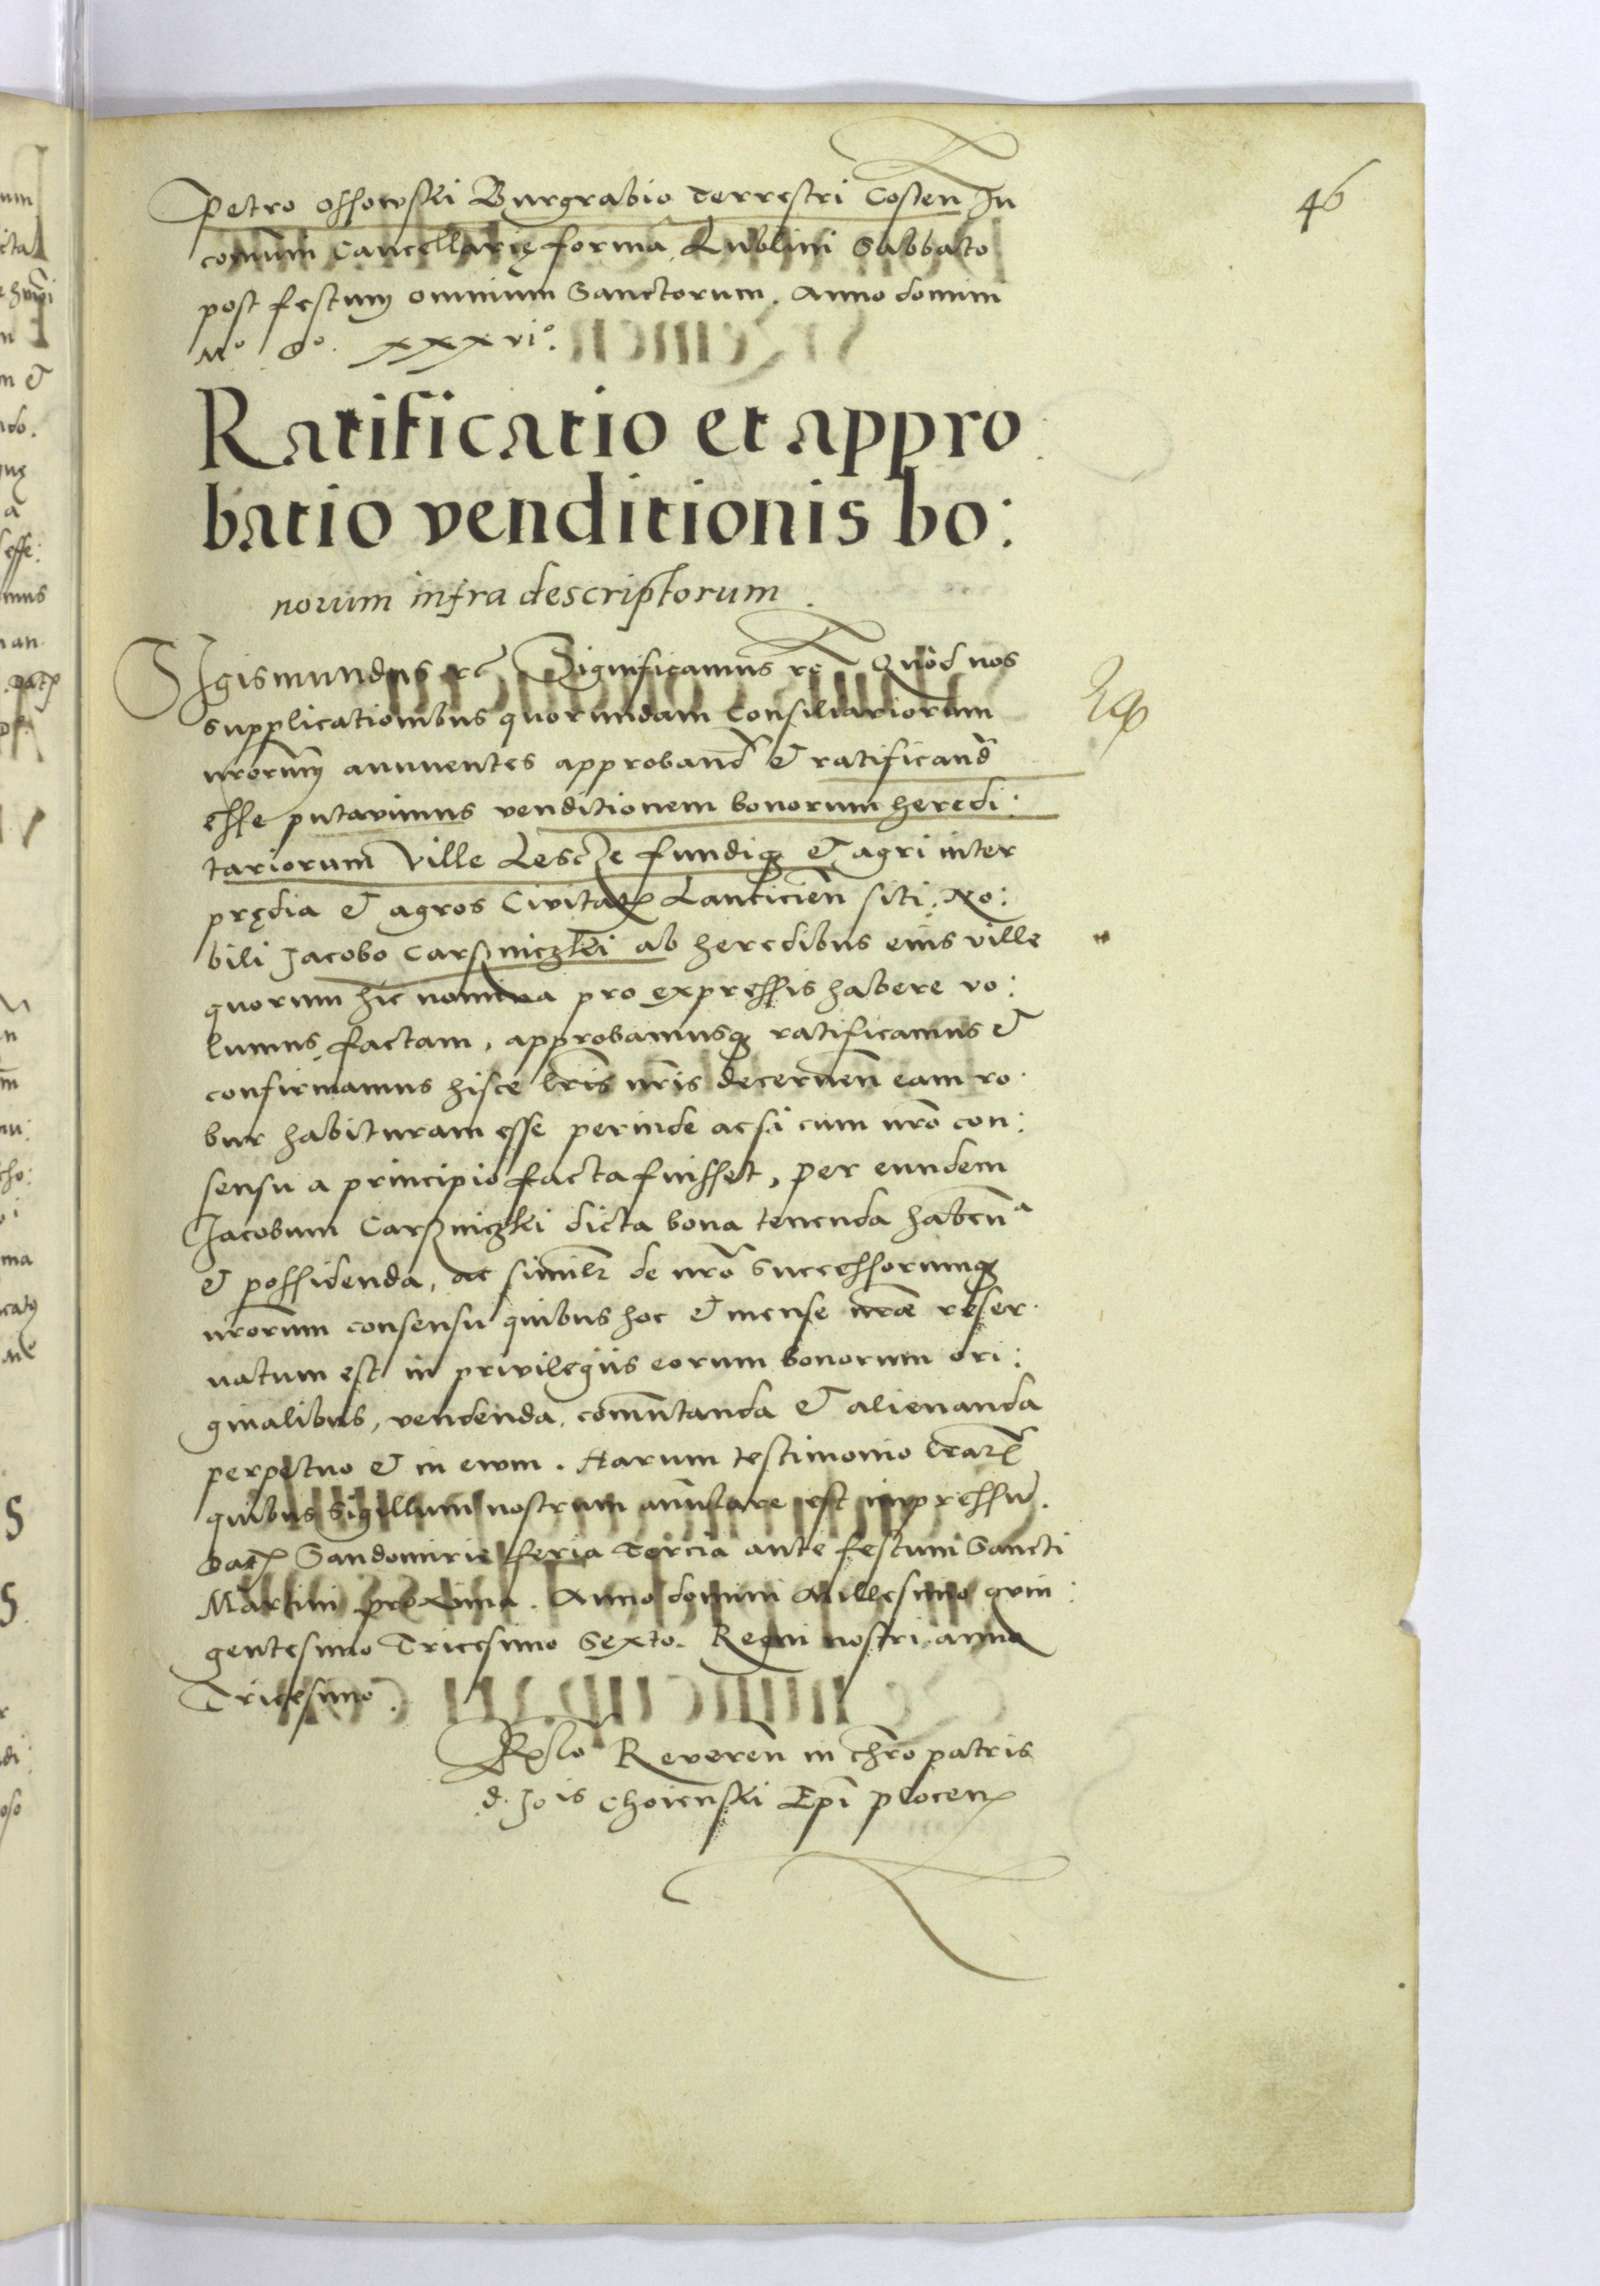 46
Petro Ossowski Burgrabio Terrestri Costen In
comuni Cancellarię forma Lublini Sabbato
post festum omnium Sanctorum. Anno domini
Mº. Dº. xxxviº.
Ratificatio et appro
batio venditionis bo:
norum infra descriptorum.
Sigismundus rc Significamus rc Quod nos
supplicationibus quorundam Consiliariorum
nrorum annuentes approband et ratificand
esse putavimus venditionem bonorum heredi:
tariorum Ville Lescze fundiq et agri inter
prędia et agros Civitatis Lancicien siti, No:
bili Jacobo Carsniczki ab heredibus eius ville
quorum hic nomina pro expressis habere vo:
lumus, factam, approbamusq ratificamus et
confirmamus hisce lris nris decernen eam ro
bur habituram esse perinde acsi cum nro con:
sensu a principio facta fuisset, per eundem
Jacobum Carsniczki dicta bona tenenda haben a
et possidenda, ac similr de nro Successorumq
nrorum consensu quibus hoc et mense nrae reser
uatum est in privilegiis eorum bonorum ori:
ginalibus, vendenda, comutanda et alienanda
perpetuo et in evum. Harum testimonio lrarum
quibus Sigillum nostrum anulare est impressu.
Dat Sandomirie feria Tercia ante festum Sancti
Martini proxima. Anno domini Millesimo quin:
gentesimo Tricesimo Sexto. Regni nostri anno
Tricesimo.
Rlo Reveren in chro patris
d. Jois Choienski Epi plocen